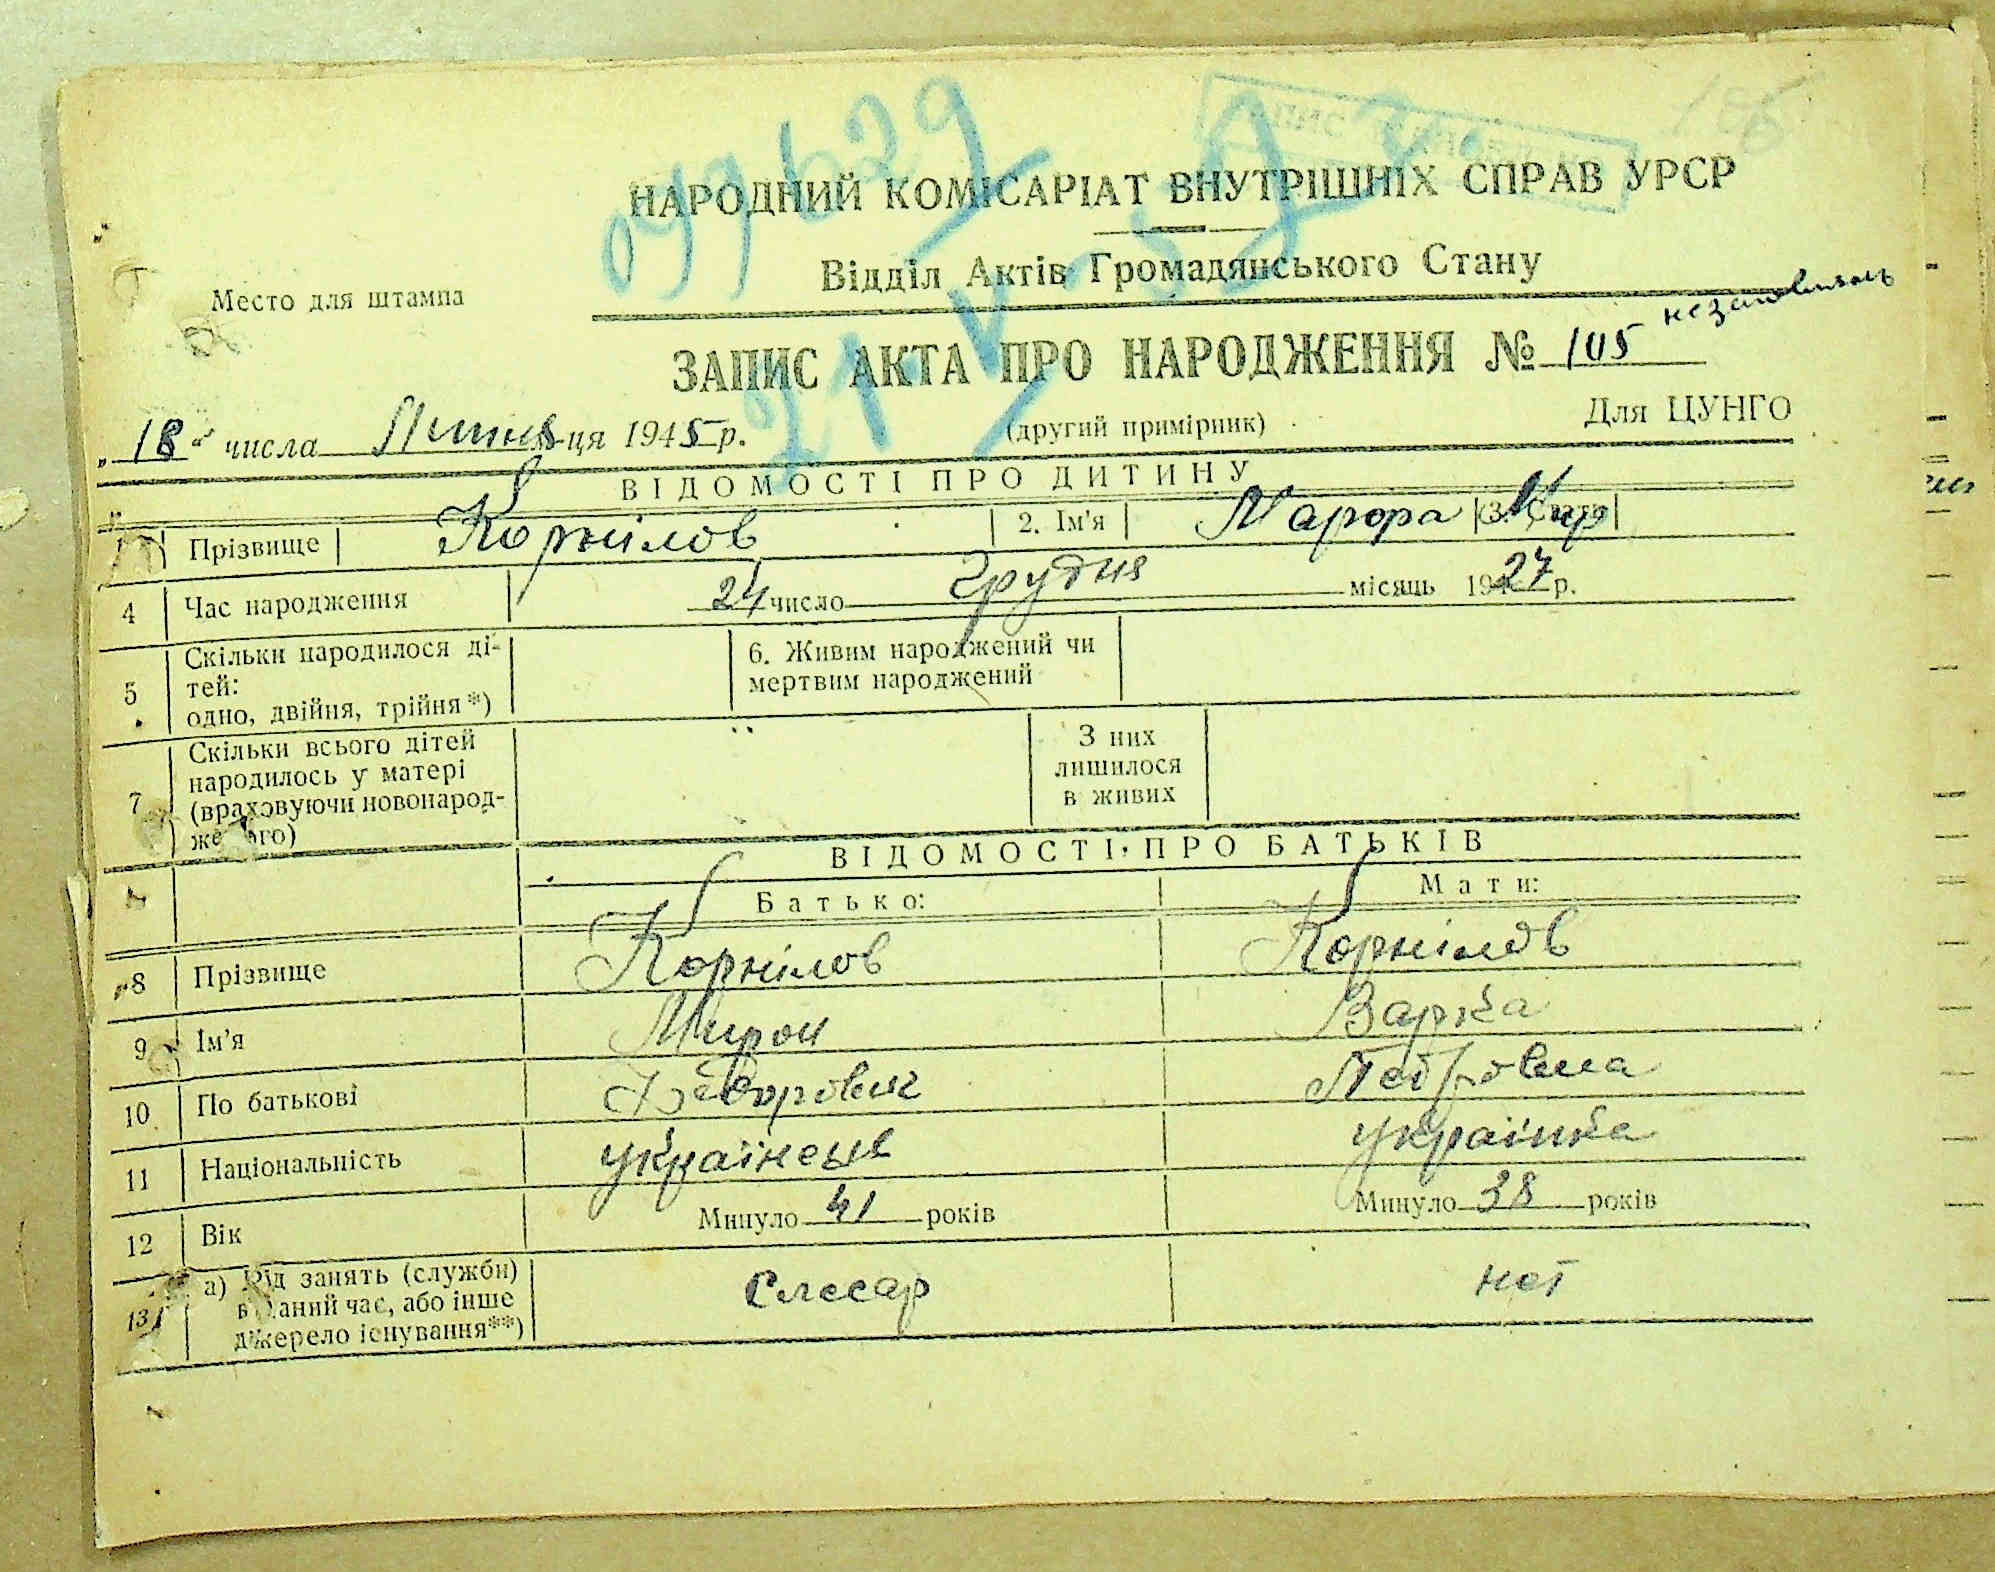 097629
НАРОДНИЙ КОМІСАРІАТ ВНУТРІШНІХ СПРАВ УРСР
Відділ Актів Громадянського Стану
Место для штампа
ЗАПИС АКТА ПРО НАРОДЖЕННЯ № 105
„18“ числа Липня м-ця 1945 р.
(другий примірник)
Для ЦУНГО
ВІДОМОСТІ ПРО ДИТИНУ
1 Прізвище Корнілов 2. Ім'я 3. Стать
4 Час народження 24 число Грудня місяць 1927 р.
5 Скільки народилося ді-
тей:
одно, двійня, трійня *)
6. Живим народжений чи
мертвим народжений
7 Скільки всього дітей
народилось у матері
(враховуючи новонарод-
женого)
З них
лишилося
в живих
ВІДОМОСТІ ПРО БАТЬКІВ
Батько: Мати:
8 Прізвище Корнілов Корнілов
9 Ім'я Мирон Варка
10 По батькові Федорович Петровна
11 Національність українець українка
12 Вік Минуло 41 років Минуло 38 років
13 а) Рід занять (служби)
в даний час, або інше
джерело існування**)
Слесар нет